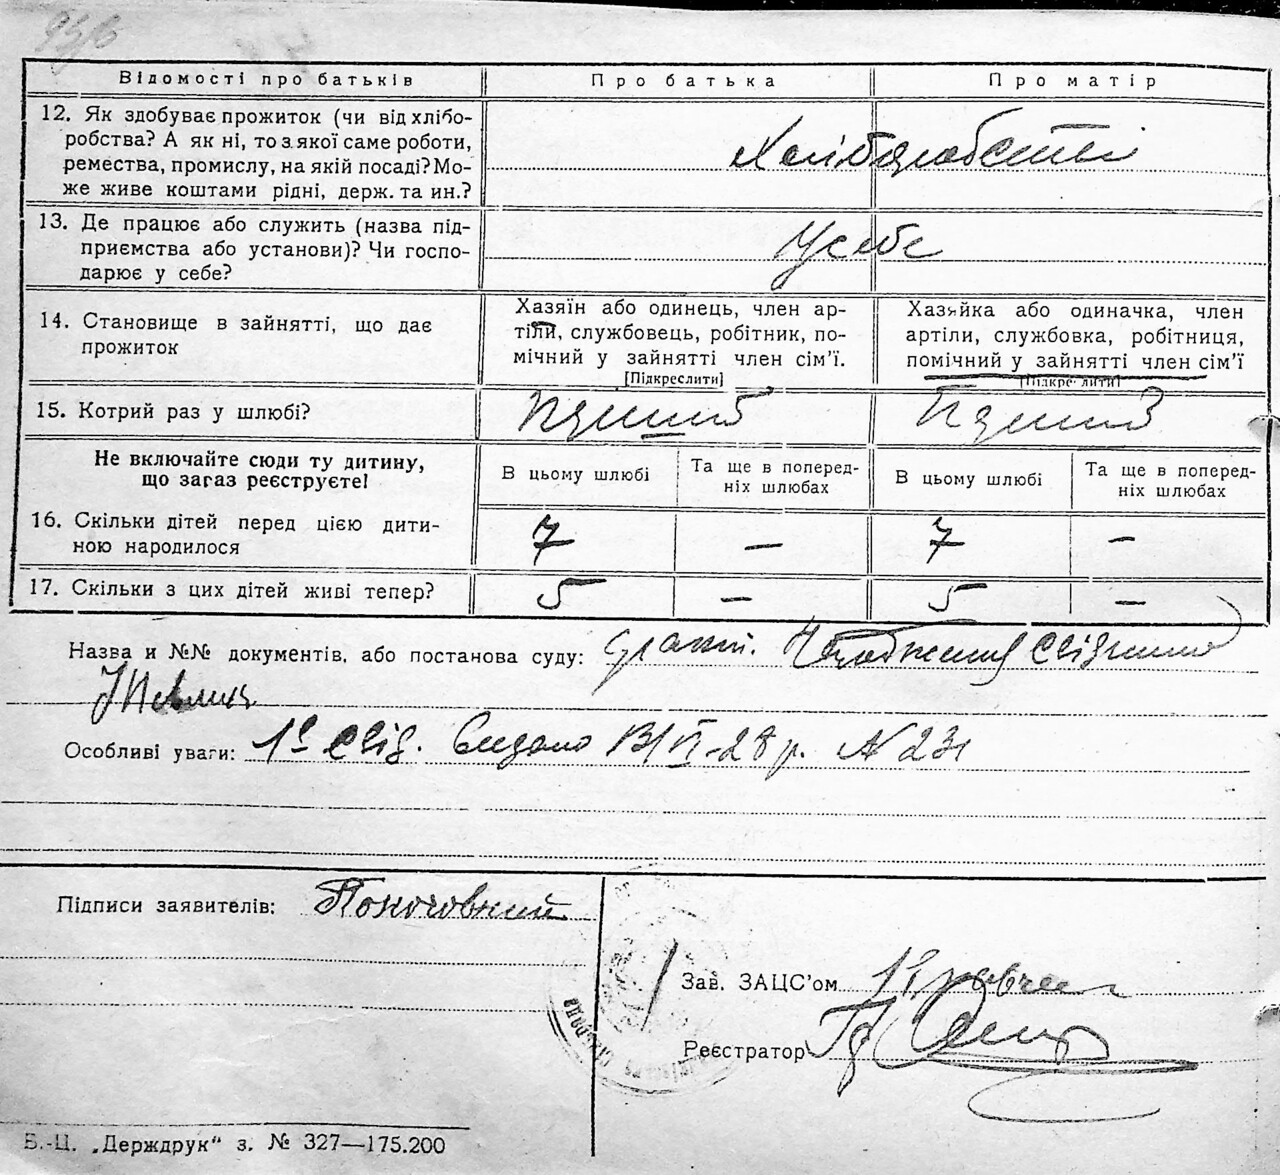 Відомості про батьків Про батька Про матір
12. Як здобуває прожиток (чи від хлібо-
робства? А як ні, то з якої саме роботи,
ремества, промислу, на якій посаді? Мо-
же живе коштами рідні, держ. та ин.?
Хліборобства
13. Де працює або служить (назва під-
приємства або установи)? Чи госпо-
дарює у себе?
У себе
14. Становище в зайнятті, що дає
прожиток
Хазяїн або одинець, член ар-
тіли, службовець, робітник, по-
мічний у зайнятті член сім’ї.
[Підкреслити]
Хазяйка або одиначка, член
артіли, службовка, робітниця,
помічний у зайнятті член сім’ї
[Підкреслити]
15. Котрий раз у шлюбі?
Не включайте сюди ту дитину,
що загаз реєструєте!
В цьому шлюбі Та ще в поперед-
ніх шлюбах В цьому шлюбі Та ще в поперед-
ніх шлюбах
16. Скільки дітей перед цією дити-
ною народилося 7 — 7 —
17. Скільки з цих дітей живі тепер? 5 — 5 —
Назва и №№ документів, або постанова суду:
Особливі уваги: свід. Видано 13/VI-28 р. № 231
Підписи заявителів:
Зав. ЗАЦС’ом
Реєстратор
Б.-Ц. „Держдрук“ з. № 327—175.200